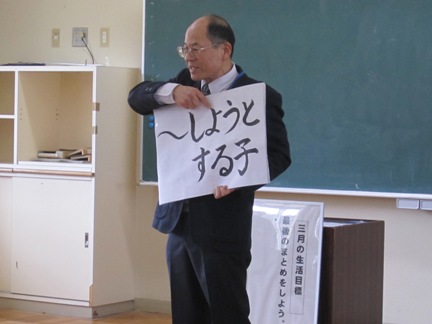 ～しようと
する子
三月の生活目標
最後のまとめをしよう。